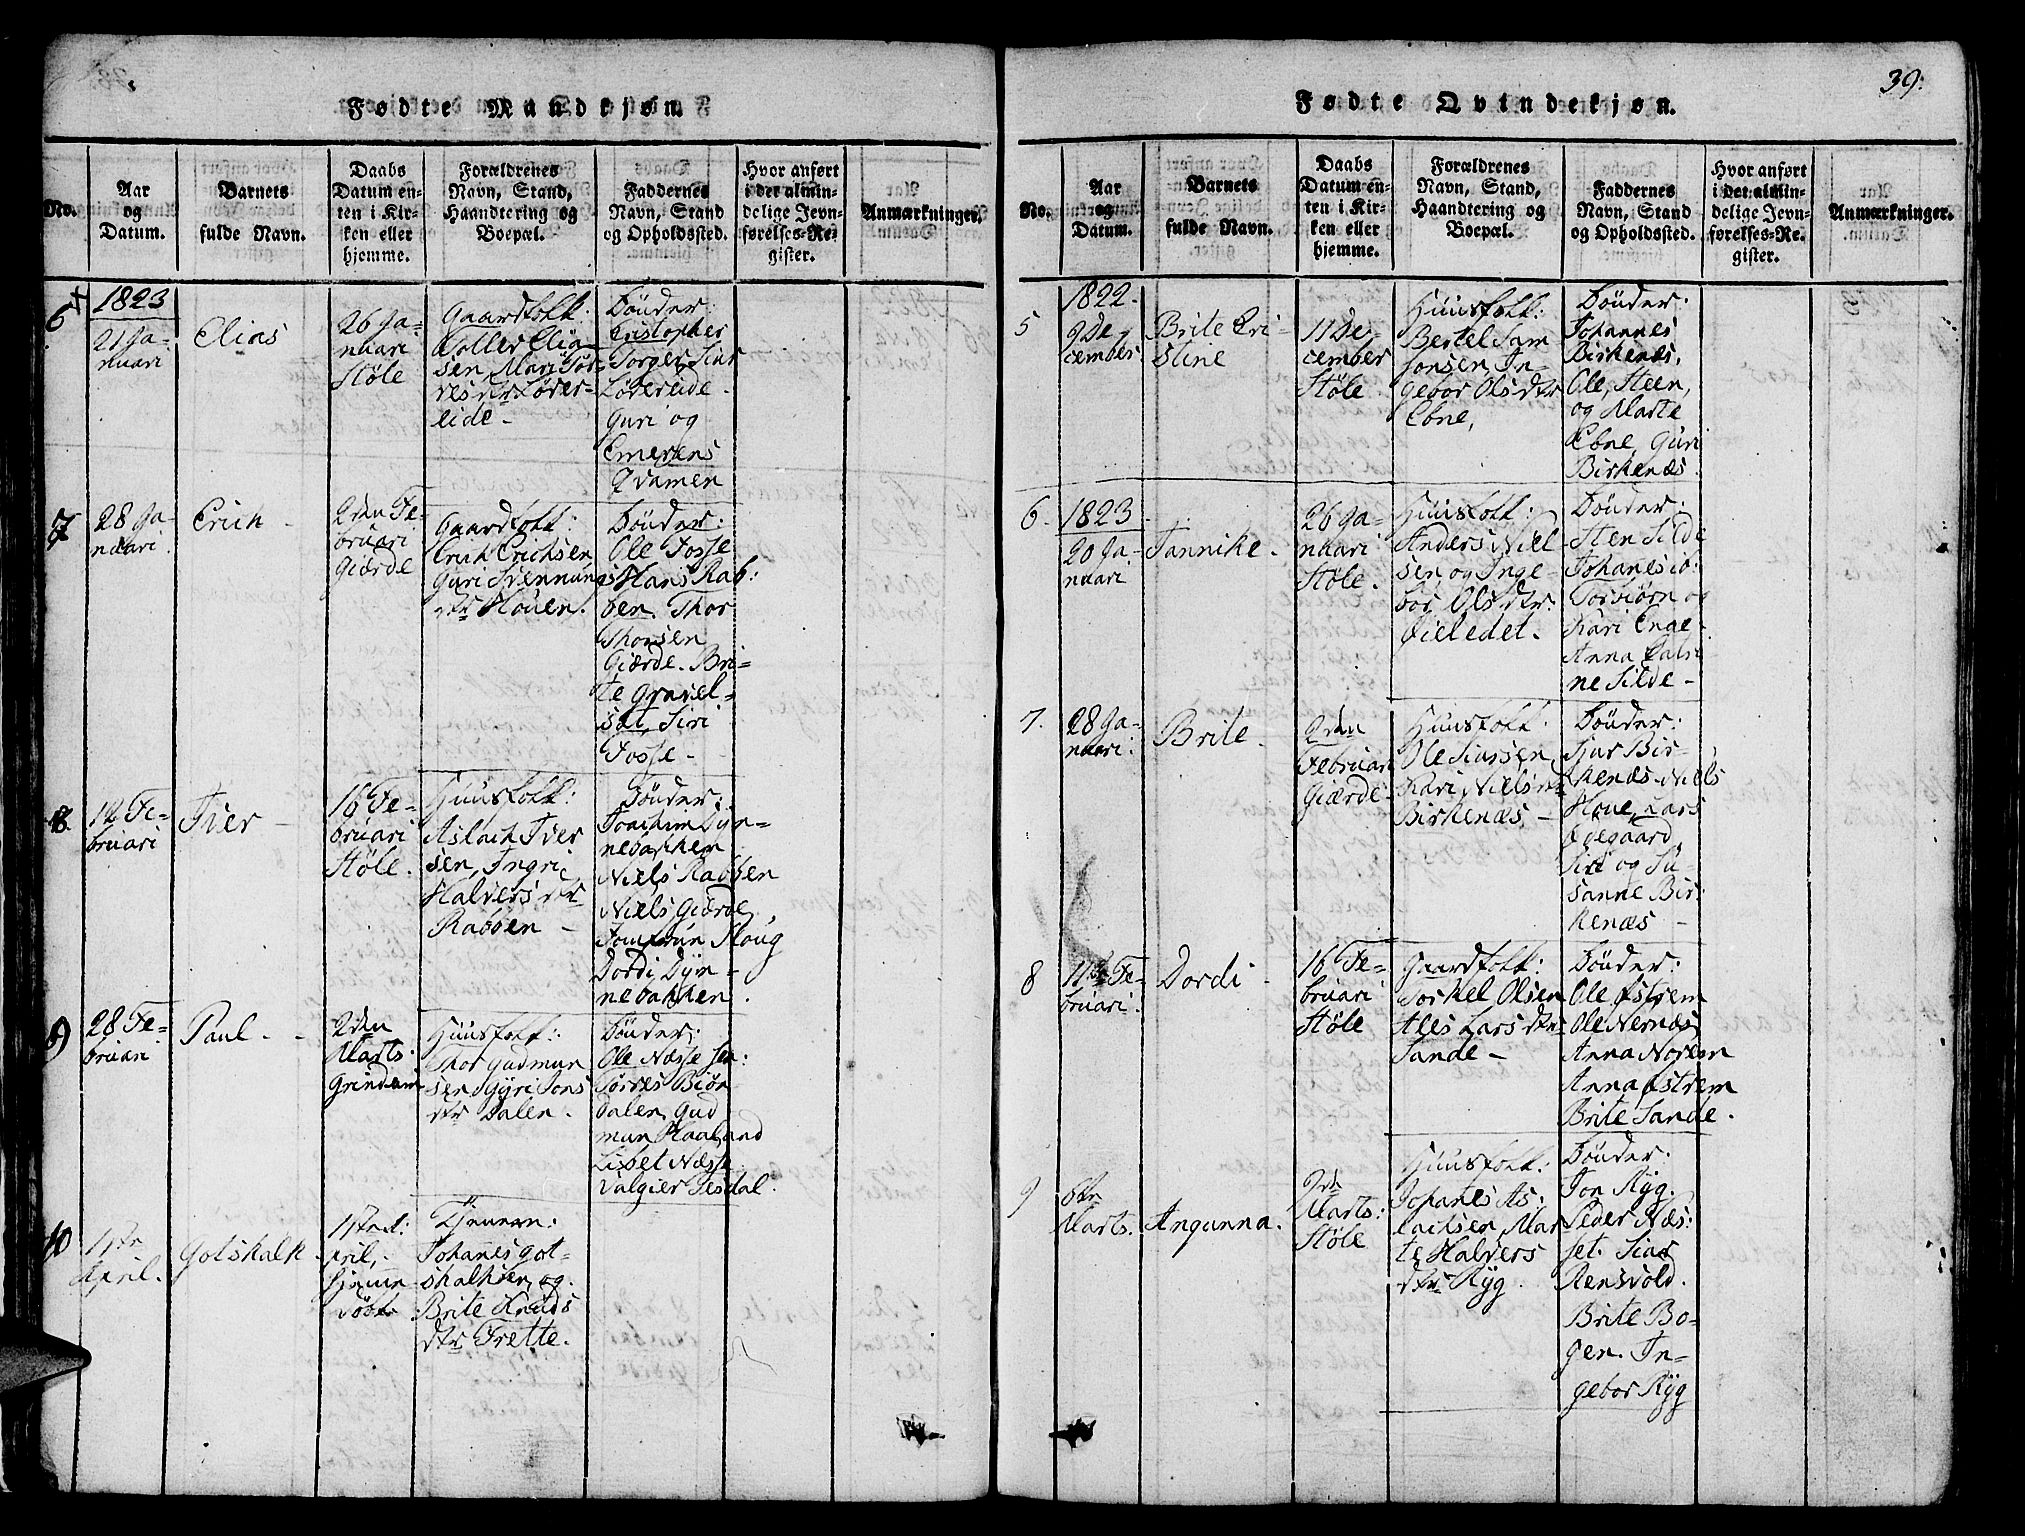 Fødte Mandkjøn.
No.
Aar
og
Datum.
Barnets
fulde Navn.
Daabs
Datum en-
ten i Kir-
ken eller
hjemme.
Forældrenes
Navn, Stand,
Haandtering og
Boepæl.
Faddernes
Navn, Stand
og Opholdssted.
Hvor anført
i det almin-
delige Jevn-
førelses-Re-
gister.
Anmærkninger.
6
1823
21 Ja-
nuari
Elias
26 Ja-
nuari
Støle
Gaardfolk:
Toller Elia-
sen, Mari Tor-
res dtr Løver-
eide -
Bønder:
Cristopher
Torger, Siur
Løvereide.
Guri og
Emerens
Qvamen
7
28 Ja-
nuari
Erich -
2den Fe-
bruari
Giærde
Gaardfolk:
Erich Erichsen
Guri Svennungs
dtr Houen.
Bønder:
Ole Fosse
Hans Rab:
ben. Thor
Thorsen
Giærde. Bri-
te Gravel-
sæt, Siri
Fosse -
8
12 Fe-
bruari
Iver -
16 Fe-
bruari
Støle.
Huusfolk:
Aslach Iver
sen, Ingri
Halvers dtr
Rabben -
Bønder:
Joachim Dyn-
nebakken
Niels Rabben
Niels Giærde,
Jomfrun Houg
Dordi Dyn-
nebakken.
9
28 Fe-
bruari
Paul - -
2den
Marts:
Grindem
Huusfolk:
Thor Gudmun
sen, Gyri Jons
dtr Dalen -
Bønder:
Ole Næsse sen:
Torres Biør
dalen, Gud
mun Haaland
Lisbet Næsse
Valgier Tesdal.
10
1ste
April.
Gotskalk -
1ste A:
pril,
hjemme
døbt
Tjenern:
Johanes Got-
skalksen, og
Brite Knuds
dtr Frette.
39.
Fødte Qvindekjøn.
No.
Aar
og
Datum.
Barnets
fulde Navn.
Daabs
Datum en-
ten i Kir-
ken eller
hjemme.
Forældrenes
Navn, Stand,
Haandtering og
Boepæl.
Faddernes
Navn, Stand
og Opholdssted.
Hvor anført
i det almin-
delige Jevn-
førelses-Re-
gister.
Anmærkninger.
5
1822.
9 De-
cember
Brite Cri-
stine
11 De-
cember
Støle
Huusfolk:
Bertel Sam
sonsen, In-
gebor Ols dtr
Ebne,
Bønder:
Johannes
Birkenæs,
Ole, Steen,
og Marte
Ebne, Guri
Birkenæs.
6.
1823
20 Ja-
nuari
Jannike -
26 Ja-
nuari
Støle.
Huusfolk:
Anders Niel
sen, og Inge-
bor Ols dtr:
Øieledet.
Bønder:
Sten Silde
Johanes ib:
Torbiørn og
Kari Enge-
Anna Catri
ne Silde -
7.
28 Ja-
nuari:
Brite -
2den
Februari
Giærde
Huusfolk
Ole Siursen,
Kari Niels dtr
Birkenæs -
Bønder:
Siur Bir-
kenæs. Niels
Houe, Lars
Ødegaard,
Siri og Su-
sanne Bir:
kenæs -
8
11 Fe-
bruari.
Dordi -
16 Fe-
bruari
Støle
Gaardfolk:
Torkel Olsen
Ales Lars dtr
Sande -
Bønder:
Ole Østrem
Ole Nernæs,
Anna Norem
Anna Østrem
Brite Sande.
9
6te
Marts.
Anganna.
9de
Marts:
Støle
Huusfolk:
Johanes As:
lachsen, Mar
te Halvers
dtr Ryg.
Bønder:
Jon Ryg.
Peder Næs:
set. Siur
Rensvold.
Brite Bo-
gen. In-
gebor Ryg